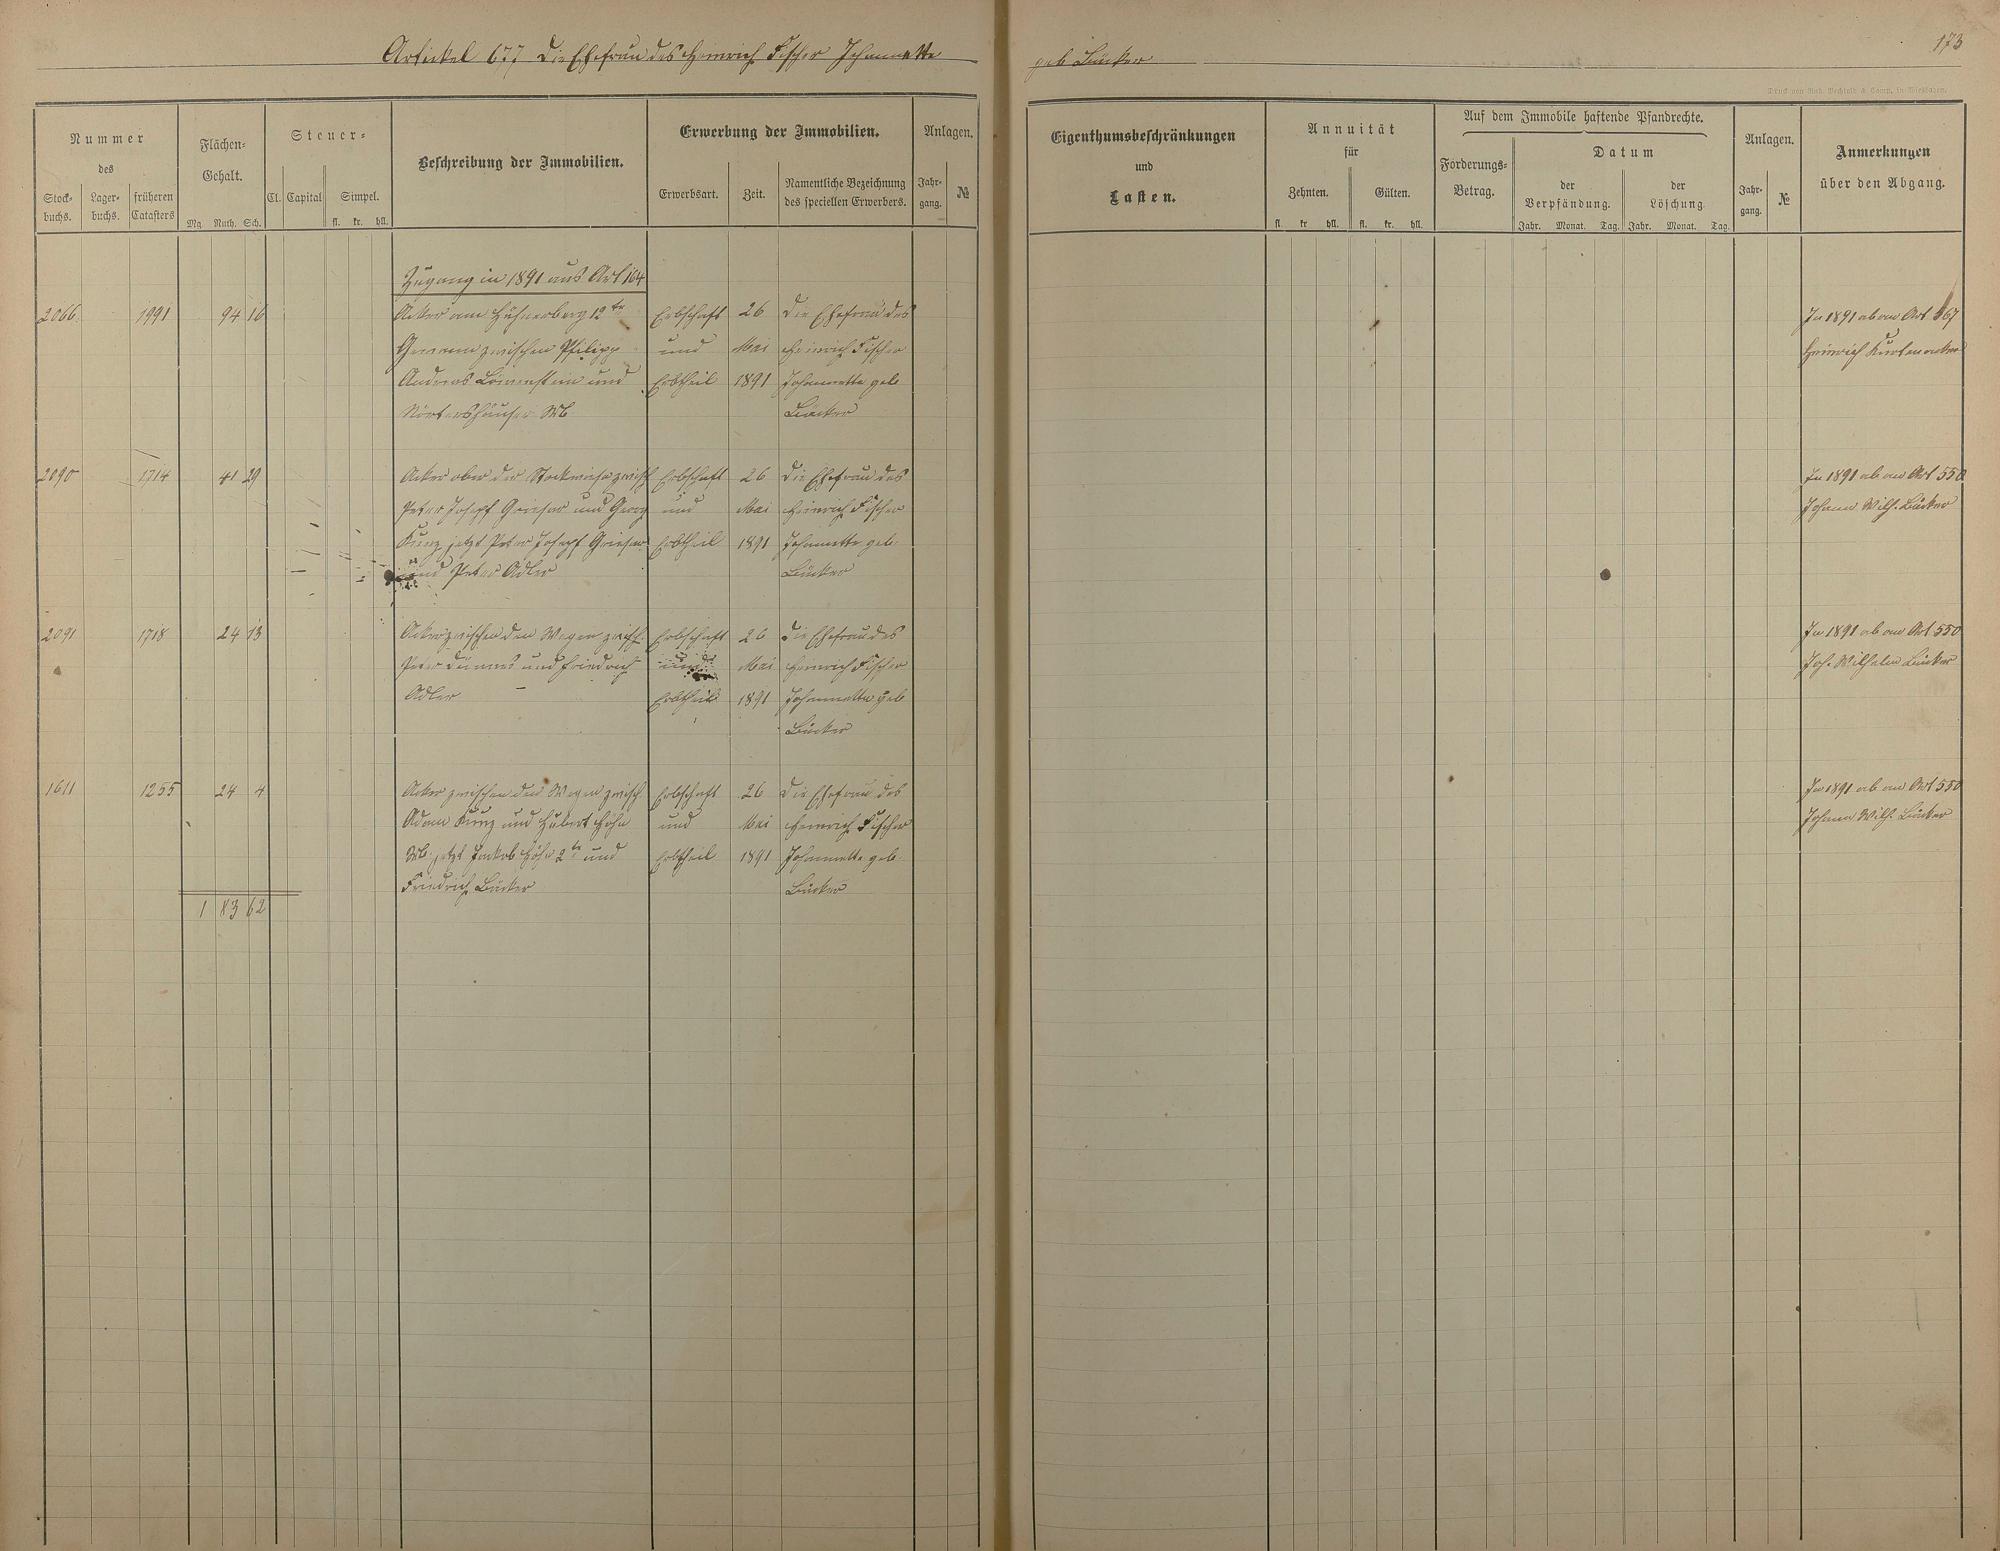 Artickel 677 Die Ehefrau des Heinrich Fischer Johannette geb Bücker
173
Druck von Rud. Bechtold & Comp. in Wiesbaden.
Nummer
des
Stock-
buchs.
Lager-
buchs.
früheren
Catasters
Flächen-
Gehalt.
Mg. Ruth. Sch.
Steuer-
Cl. Capital
Simpel.
fl. kr. hll.
Beschreibung der Immobilien.
Erwerbung der Immobilien.
Erwerbsart.
Zeit.
Namentliche Bezeichnung
des speciellen Erwerbers.
Anlagen.
Jahr-
gang.
№
Eigenthumsbeschränkungen
und
Lasten.
Annuität
für
Zehnten.
Gülten.
fl. kr. hll. fl. kr. hll.
Auf dem Immobile haftende Pfandrechte.
Forderungs-
Betrag.
Datum
der
Verpfändung.
der
Löschung.
Jahr. Monat. Tag. Jahr. Monat. Tag.
Anlagen.
Jahr-
gang.
№
Anmerkungen
über den Abgang.
Zugang in 1891 aus Art 164
2066 1991 94 16 Acker am Hühnerberg 12te Erbschaft 26 Die Ehefrau des In 1891 ab an Art 567
Gewann zwischen Philipp und Mai Heinrich Fischer Heinrich
Andreas Löwenstein und Erbtheil 1891 Johannette geb
Nörtershäuser Wb Bücker
2090 1714 41 29 Acker ober der Stockwiese zwisch Erbschaft 26 Die Ehefrau des In 1891 ab an Art 550
Peter Joseph Grieser und Georg und Mai Heinrich Fischer Johann Wilh. Bücker
Kunz jetzt Peter Joseph Grieser Erbtheil 1891 Johannette geb.
und Peter Adler Bücker
2091 1718 24 13 Acker zwischen den Wegen zwisch Erbschaft 26 Die Ehefrau des In 1891 ab an Art 550
Peter und Friedrich und Mai Heinrich Fischer Joh. Wilhelm Bücker
Adler Erbtheil 1891 Johannette geb
Bücker
1611 1255 24 4 Acker zwischen den Wegen zwisch Erbschaft 26 Die Ehefrau des In 1891 ab an Art 550
Adam Kunz und Hubert Höhn und Mai Heinrich Fischer Johann Wilh. Bücker
Wb. jetzt Jakob Höhn 2te und Erbtheil 1891 Johannette geb.
Friedrich Bücker Bücker
1 83 62